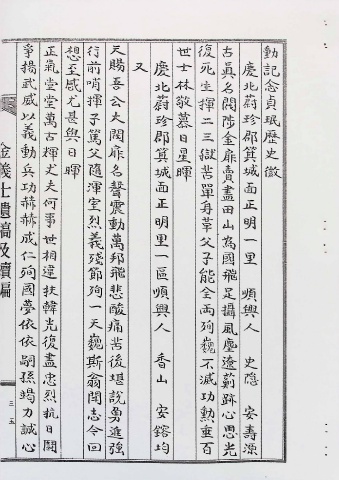 動記念貞珉歷史徵
慶北蔚珍郡箕城面正明一里 順興人 史隱 安壽源
古眞名閥陟金扉賣盡田山爲國飛足攝風塵遼薊跡心思光
復死生揮二三獄苦單身革父子能全兩殉巍不滅功勳垂百
世士林敬慕日星暉
又
慶北蔚珍郡箕城面正明里一區順興人 香山 安鎔均
天賜吾公大閥扉名聲震動萬邦飛悲酸痛苦後堪說勇進強
行前哨揮子篤父隨渾室烈義殘節殉一天巍斯翁閒志令回
想至感尤甚與日暉
正氣堂堂萬古輝丈夫何事世相違扶韓光復盡忠烈抗日閧
爭揚武威以義動兵功赫赫成仁殉國夢依依嗣孫竭力誠心
金義士遺稿及續編
三五